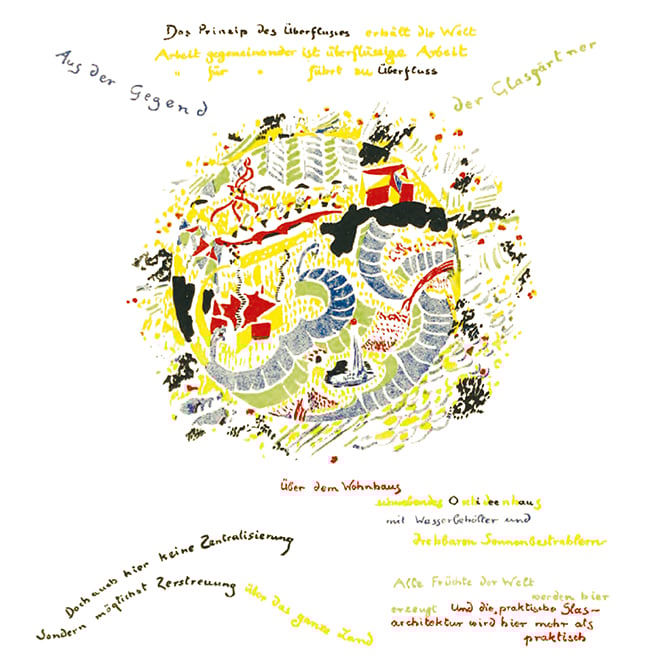 Das Prinzip des Überflusses erhält die Welt
Arbeit gegeneinander ist überflüssige Arbeit
" für " führt zu Überfluss
Aus der Gegend
der Glasgärtner
Über dem Wohnhaus
schwebendes Orchideenhaus
mit Wasserbehälter und
drehbaren Sonnenbestrahlern
Doch auch hier keine Zentralisierung
Sondern möglichst Zerstreuung über das ganze Land
Alle Früchte der Welt
werden hier
erzeugt Und die „praktische Glas-
architektur wird hier mehr als
praktisch